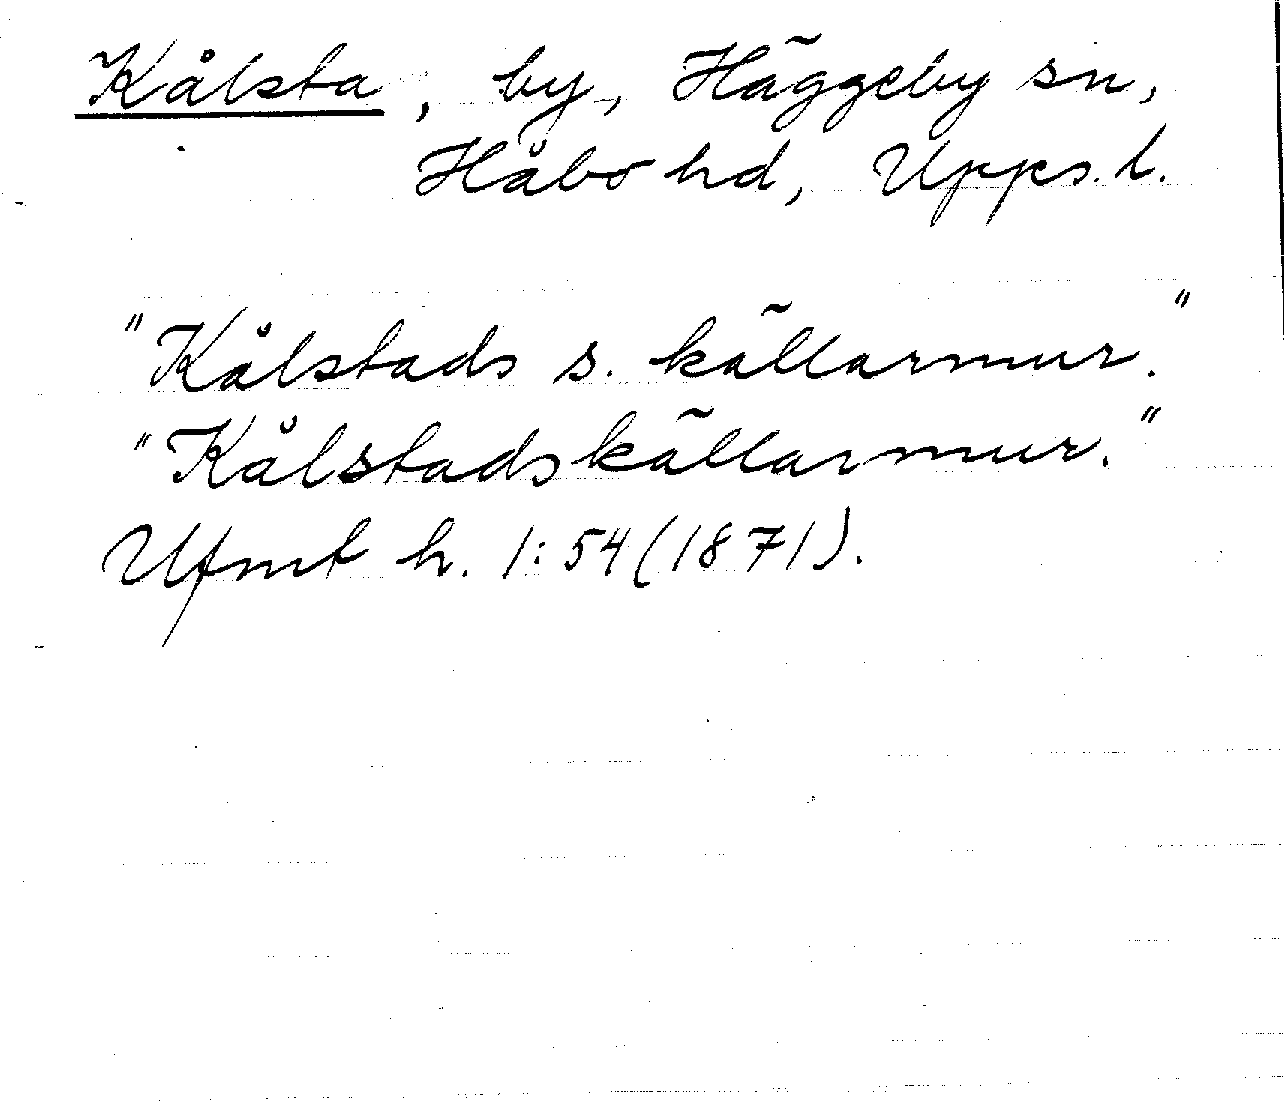 Kålsta, by, Häggeby sn,
Håbo hd, Upps. l.
"Kålstads s. källarmur."
"Kålstadskällarmur."
Ufmt h. 1:54 (1871).